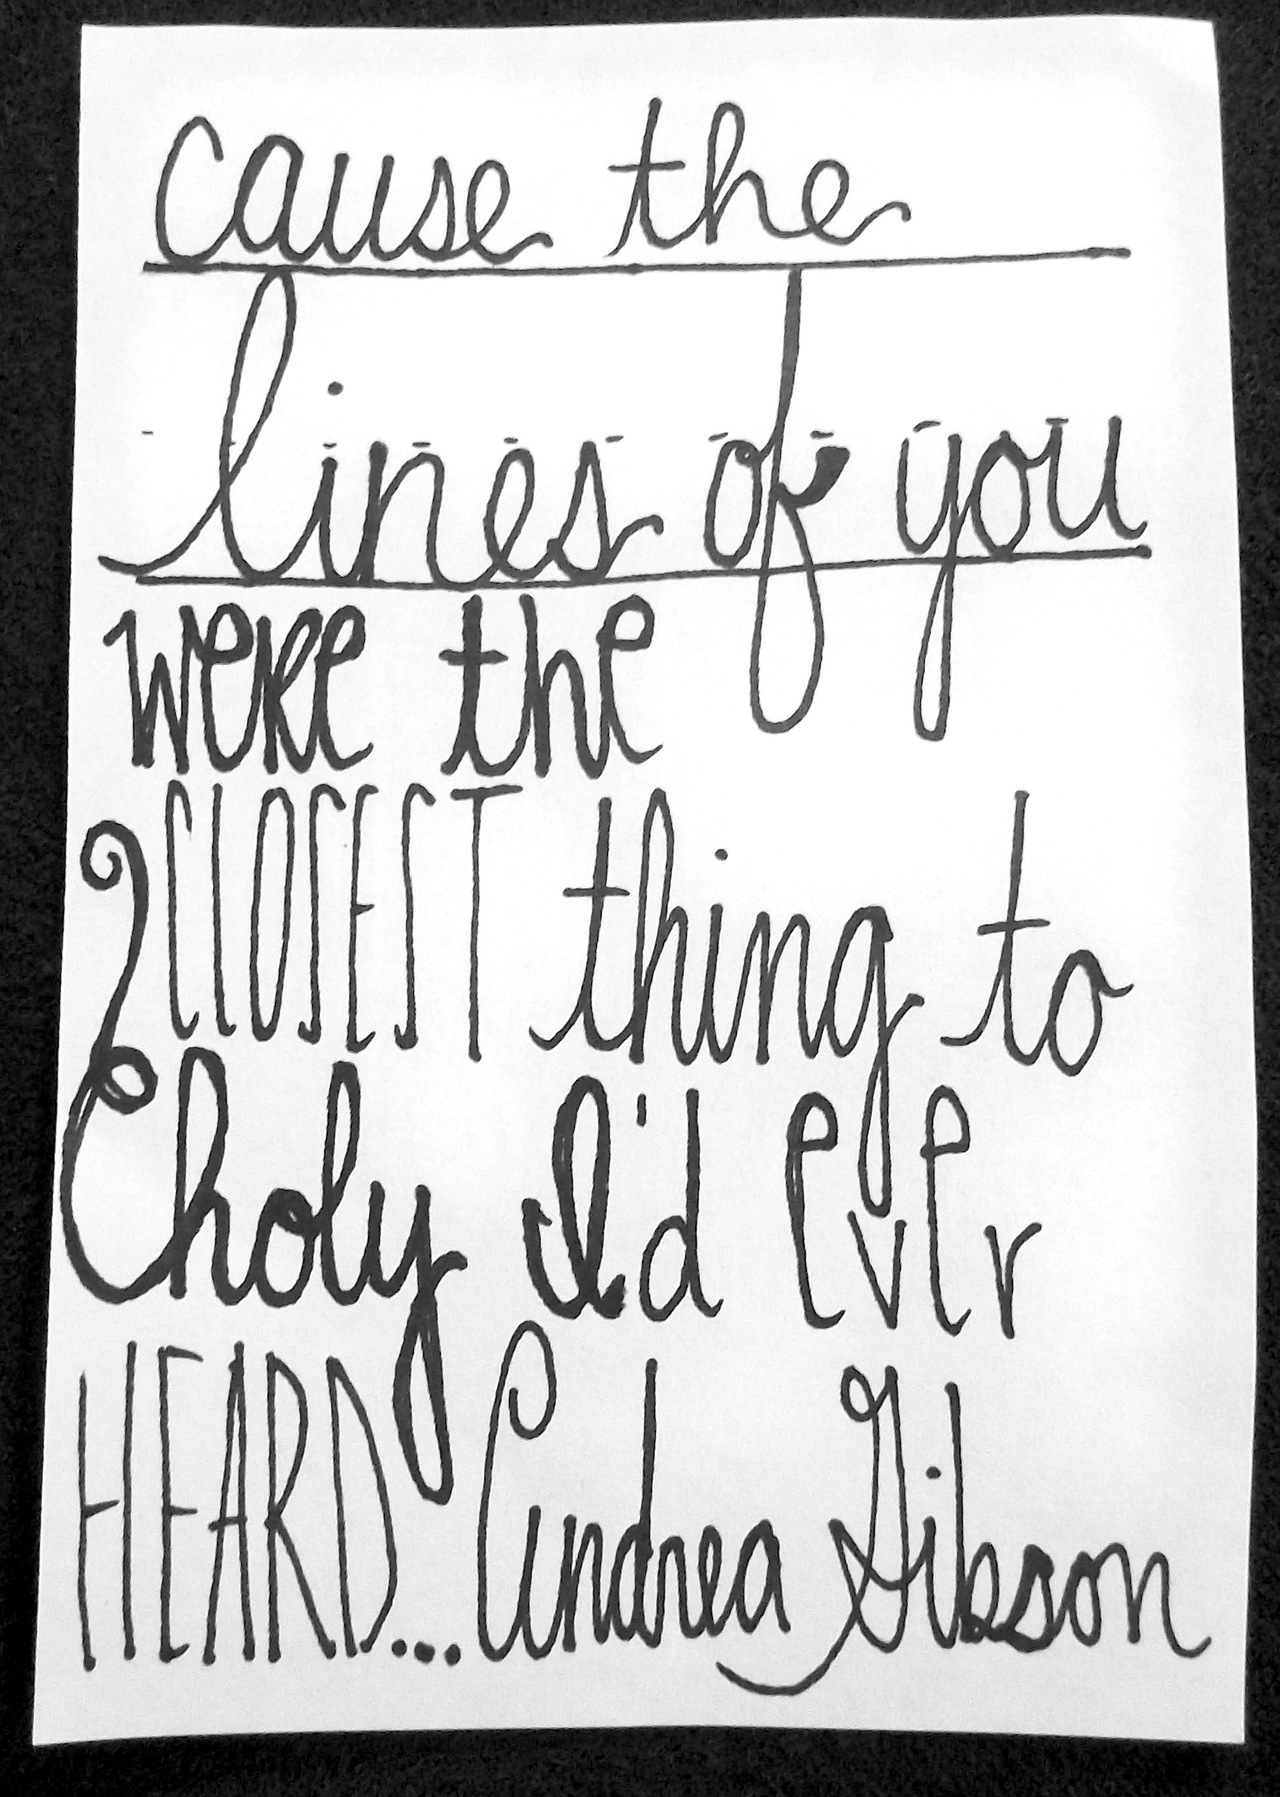 cause the
lines of you
were the
CLOSEST thing to
holy I'd ever
HEARD... Andrea Gibson